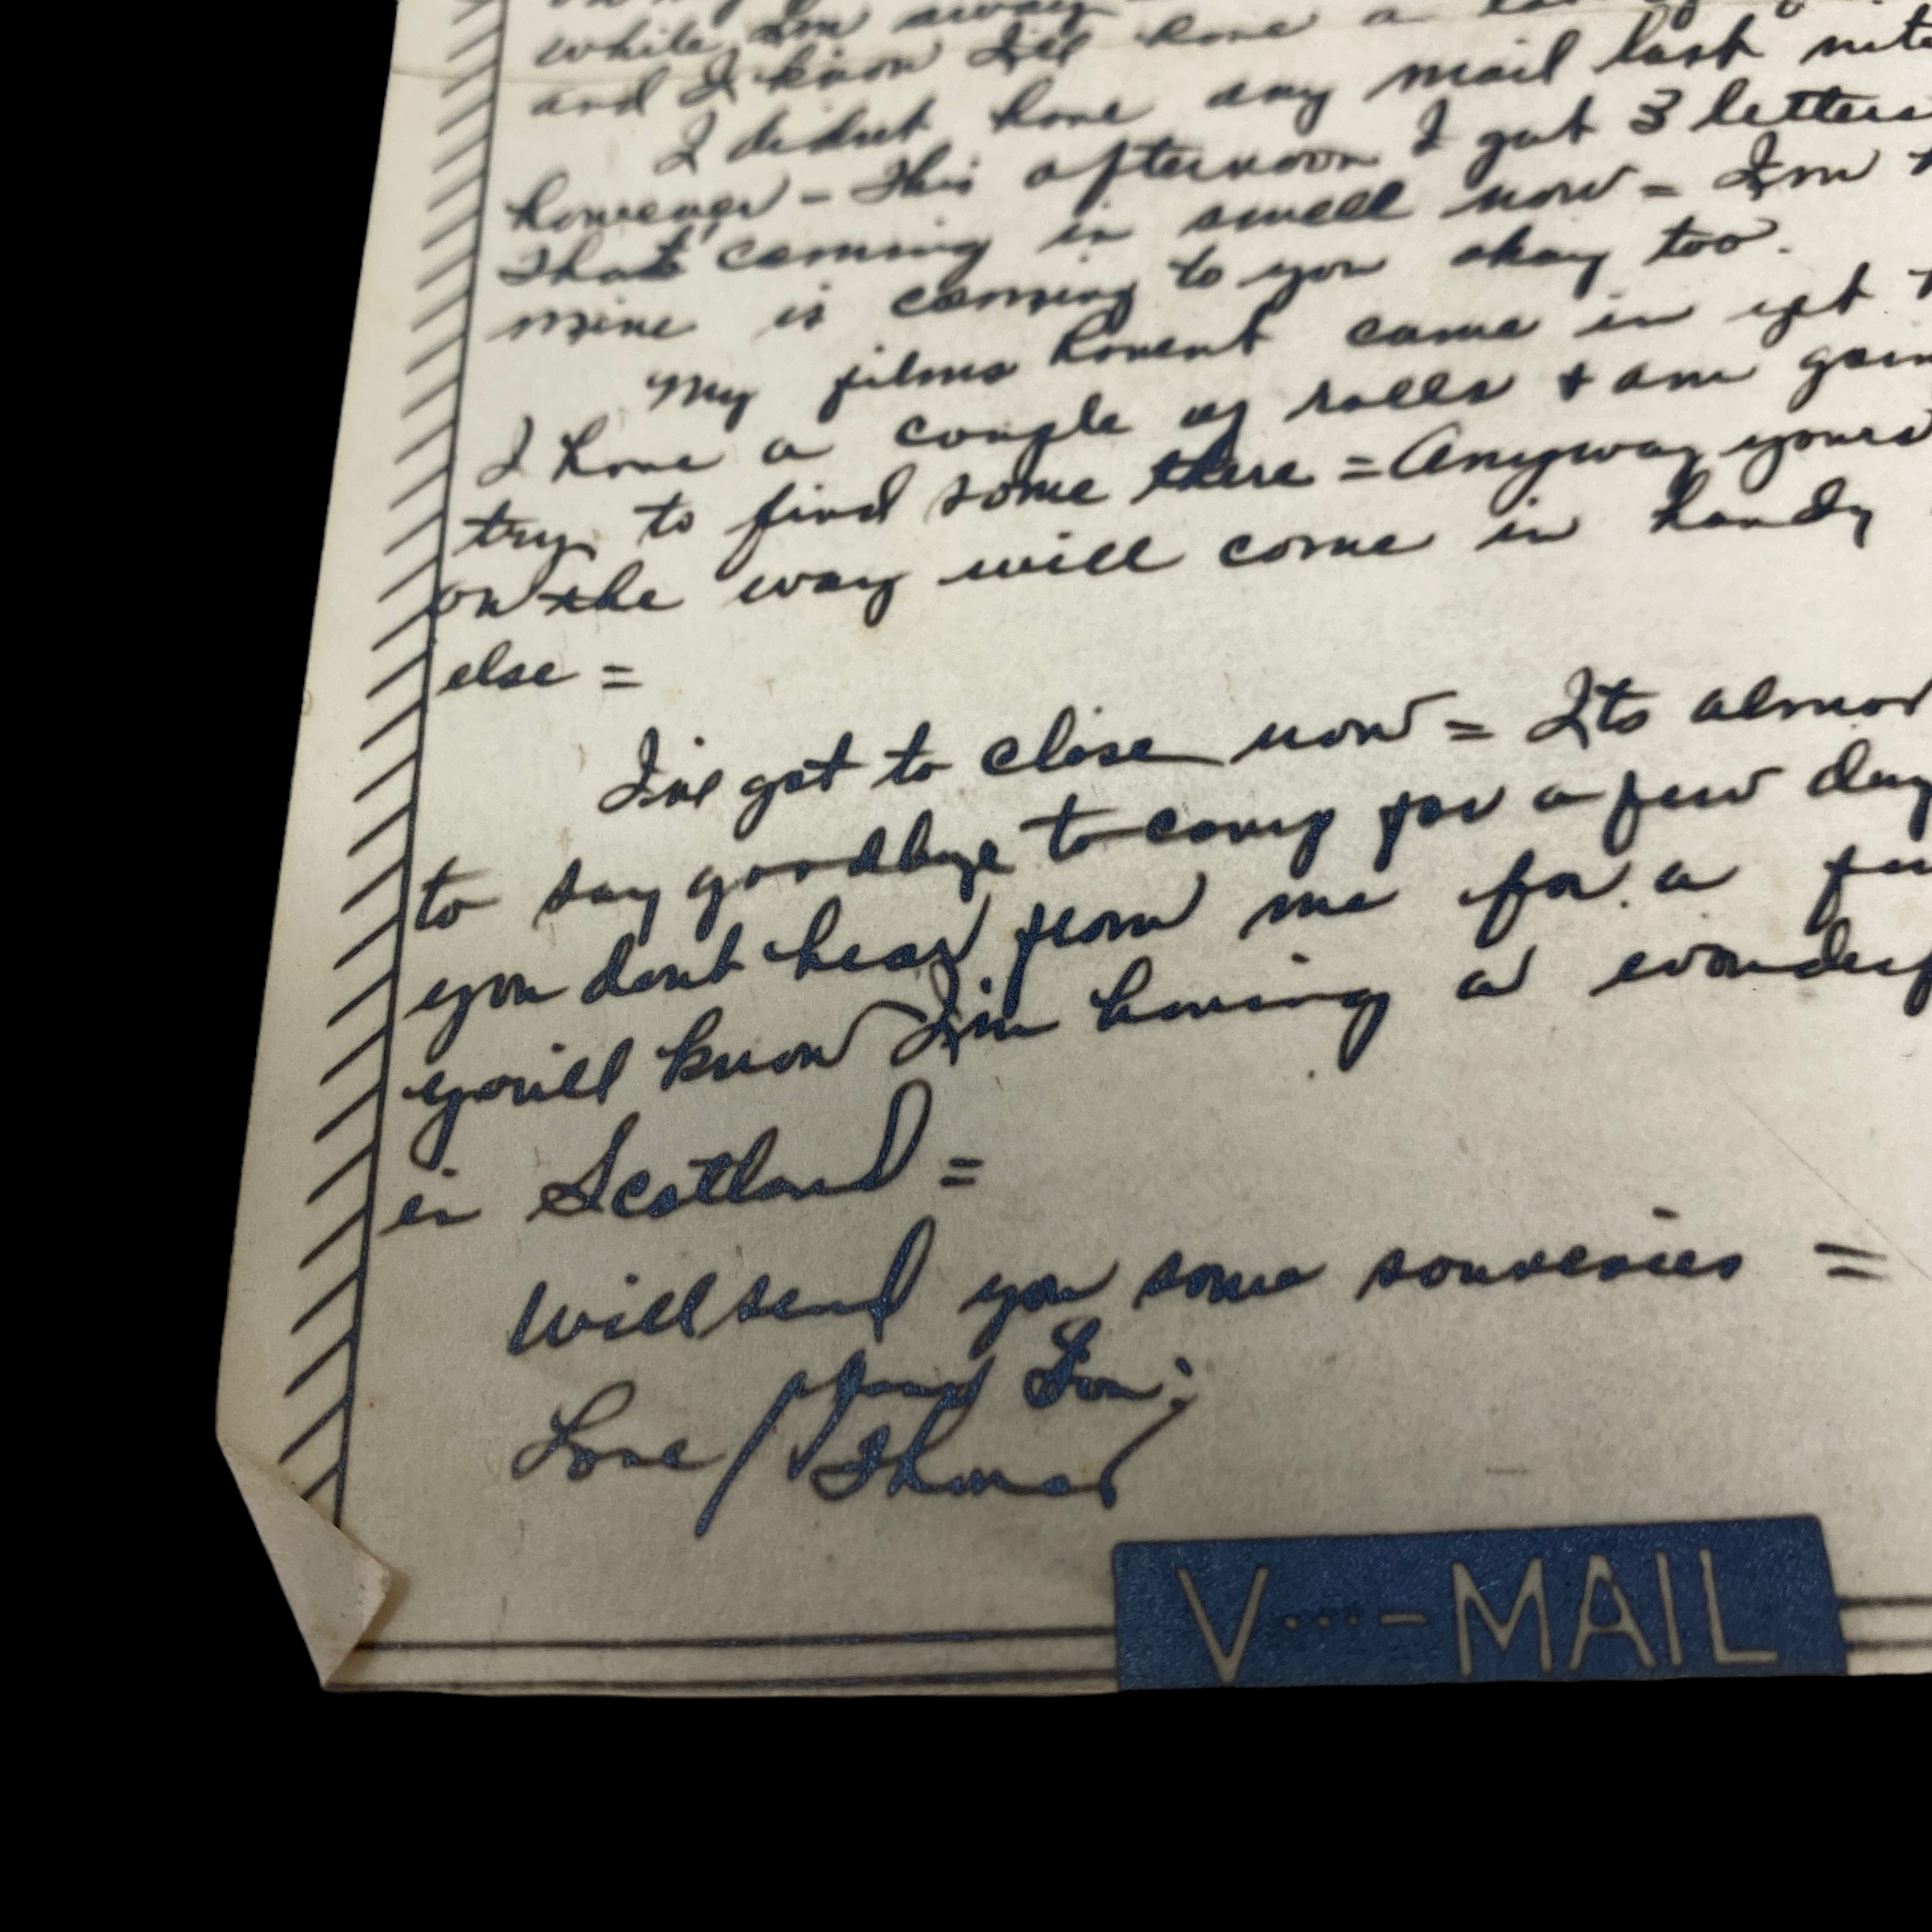 while Im away
and I know Ill have a
I didnt have any mail last nite
however - This afternoon I got 3 letters
Thats coming in swell now = Im
mine is coming to you okay too.
My films havent came in yet
I have a couple of rolls + am goin
try to find some there = Anyway yours
on the way will come in handy
else =
I've got to close now = Its almos
to say goodbye to camp for a few day
you dont hear from me for a few
you'll know I'm having a wonderf
in Scotland =
Will send you some souvenies =
Your Son;
Love / Thomas
V···-MAIL